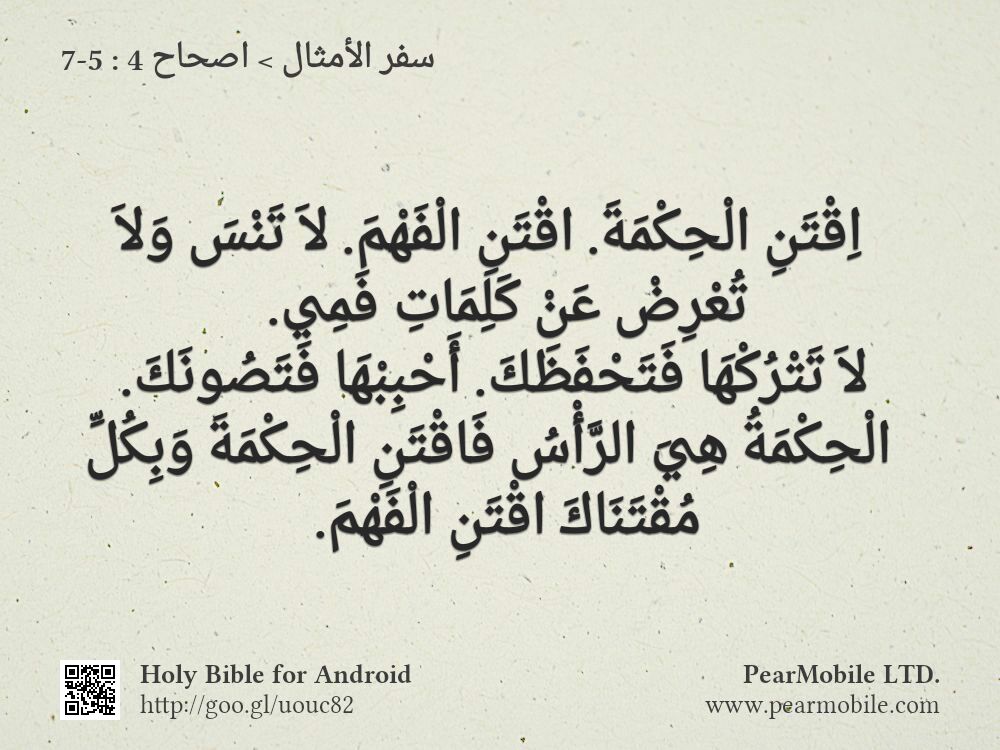 سفر الأمثال > اصحاح 4 : 5-7
اِقْتَنِ الْحِكْمَةَ. اقْتَنِ الْفَهْمَ. لاَ تَنْسَ وَلاَ
تُعْرِضْ عَنْ كَلِمَاتِ فَمِي.
لاَ تَتْرُكْهَا فَتَحْفَظَكَ. أَحْبِبْهَا فَتَصُونَكَ.
الْحِكْمَةُ هِيَ الرَّأْسُ فَاقْتَنِ الْحِكْمَةَ وَبِكُلِّ
مُقْتَنَاكَ اقْتَنِ الْفَهْمَ.
Holy Bible for Android
http://goo.gl/uouc82
PearMobile LTD.
www.pearmobile.com